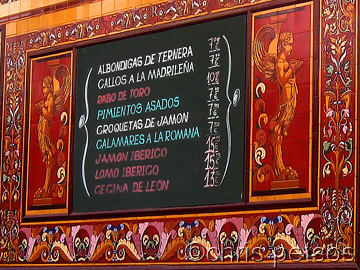 ALBONDIGAS DE TERNERA
CALLOS A LA MADRILEÑA
RABO DE TORO
PIMIENTOS ASADOS
CROQUETAS DE JAMON
CALAMARES A LA ROMANA
JAMON IBERICO
LOMO IBERICO
CECINA DE LEON
© chris peraps